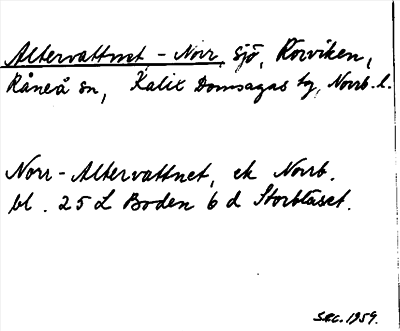 Altervattnet - Norr, sjö, Rörviken,
Råneå sn, Kalix Domsagas tg, Norrb. l.
Norr-Altervattnet, ek Norrb.
bl. 25 L Boden 6 d Storblåset.
SRC. 1959.